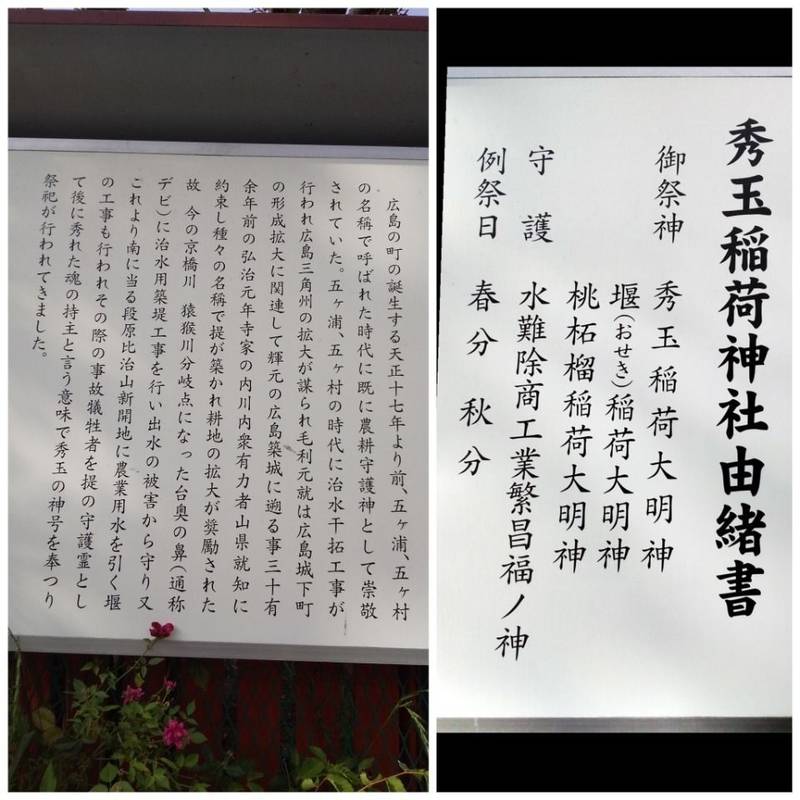 秀玉稲荷神社由緒書
御祭神 秀玉稲荷大明神
堰(おせき)稲荷大明神
桃柘榴稲荷大明神
守護 水難除商工業繁昌福ノ神
例祭日 春分 秋分
広島の町の誕生する天正十七年より前、五ヶ浦、五ヶ村
の名称で呼ばれた時代に既に農耕守護神として崇敬
されていた。五ヶ浦、五ヶ村の時代に治水干拓工事が
行われ広島三角州の拡大が謀られ毛利元就は広島城下町
の形成拡大に関連して輝元の広島築城に遡る事三十有
余年前の弘治元年寺家の内川内衆有力者山県就知に
約束し種々の名称で提が築かれ耕地の拡大が奨励された
故 今の京橋川 猿猴川分岐点になった台奥の鼻(通称
デビ)に治水用築堤工事を行い出水の被害から守り又
これより南に当る段原比治山新開地に農業用水を引く堰
の工事も行われその際の事故犠牲者を提の守護霊とし
て後に秀れた魂の持主と言う意味で秀玉の神号を奉つり
祭祀が行われてきました。